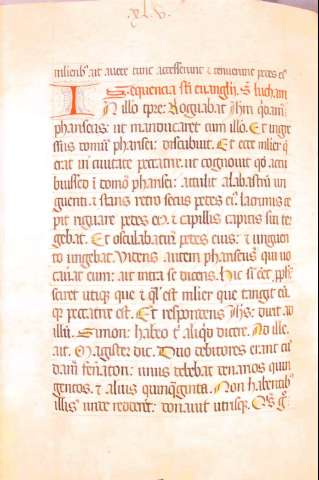 xl. v.
mulieribus ait auete tunc accesserunt ⁊ tenuerunt pedes ei⁹
Sequencia sc̄i euangelij. S. lucham
In illo tp̄re: Rogabat ih̄m q̄dam
phariseus: ut manducaret cum illo. Et ingre
ssus domū pharisei discubuit. Et ecce mulier q̄
erat in ciuitate peccatrix. ut cognouit qd̄ acu
buisset ī domo pharisei: attulit alabastrū un
guenti. ⁊ stans retro secus pedes ei⁹. lacrimis ce
pit rigare pedes ei⁹. ⁊ capillis capitis sui ter
gebat. Et osculabatur pedes eius: ⁊ unguen
to ungebat. Videns autem phariseus qui uo
cauerat eum: ait intra se dicens. Hic si eēt pp̄h̄a
sciret utique que ⁊ qual' est mulier que tangit eū.
q̄ peccatrix est. Et respondens ih̄s: dixit ad
illū. Simon: habeo t' aliqd̄ dicere. At ille
ait. Magister dic. Duo debitores erant cui
dam feneratori: unus debebat denarios quin
gentos. ⁊ alius quinquaginta. Non habentib⁹
illis unde redderet: donauit utrisq̄.